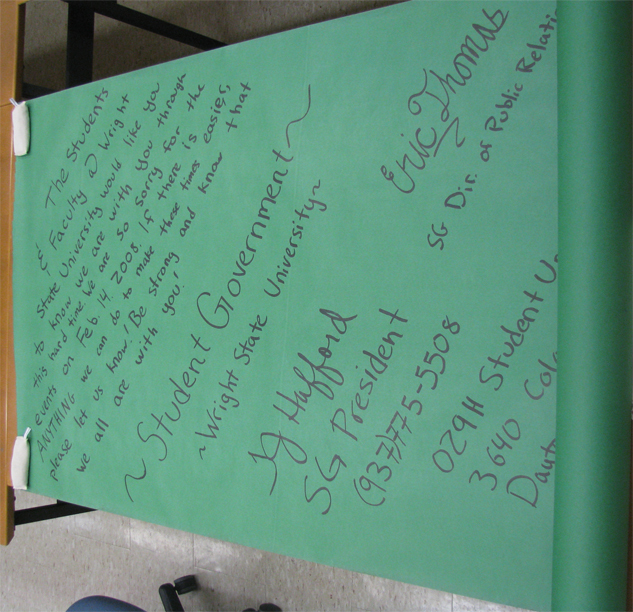 The Students
& Faculty @ Wright
State University would like you
to know we are with you through
this hard time. We are so sorry for the
events on Feb. 14, 2008. If there is
ANYTHING we can do to make these times easier,
please let us know! Be strong and know that
we all are with you!
~ Student Government ~
~ Wright State University ~
Hafford
SG President
(937)775-5508
029H Student U
3640 Col
Dayto
Eric Thomas
SG Dir. of Public Relati